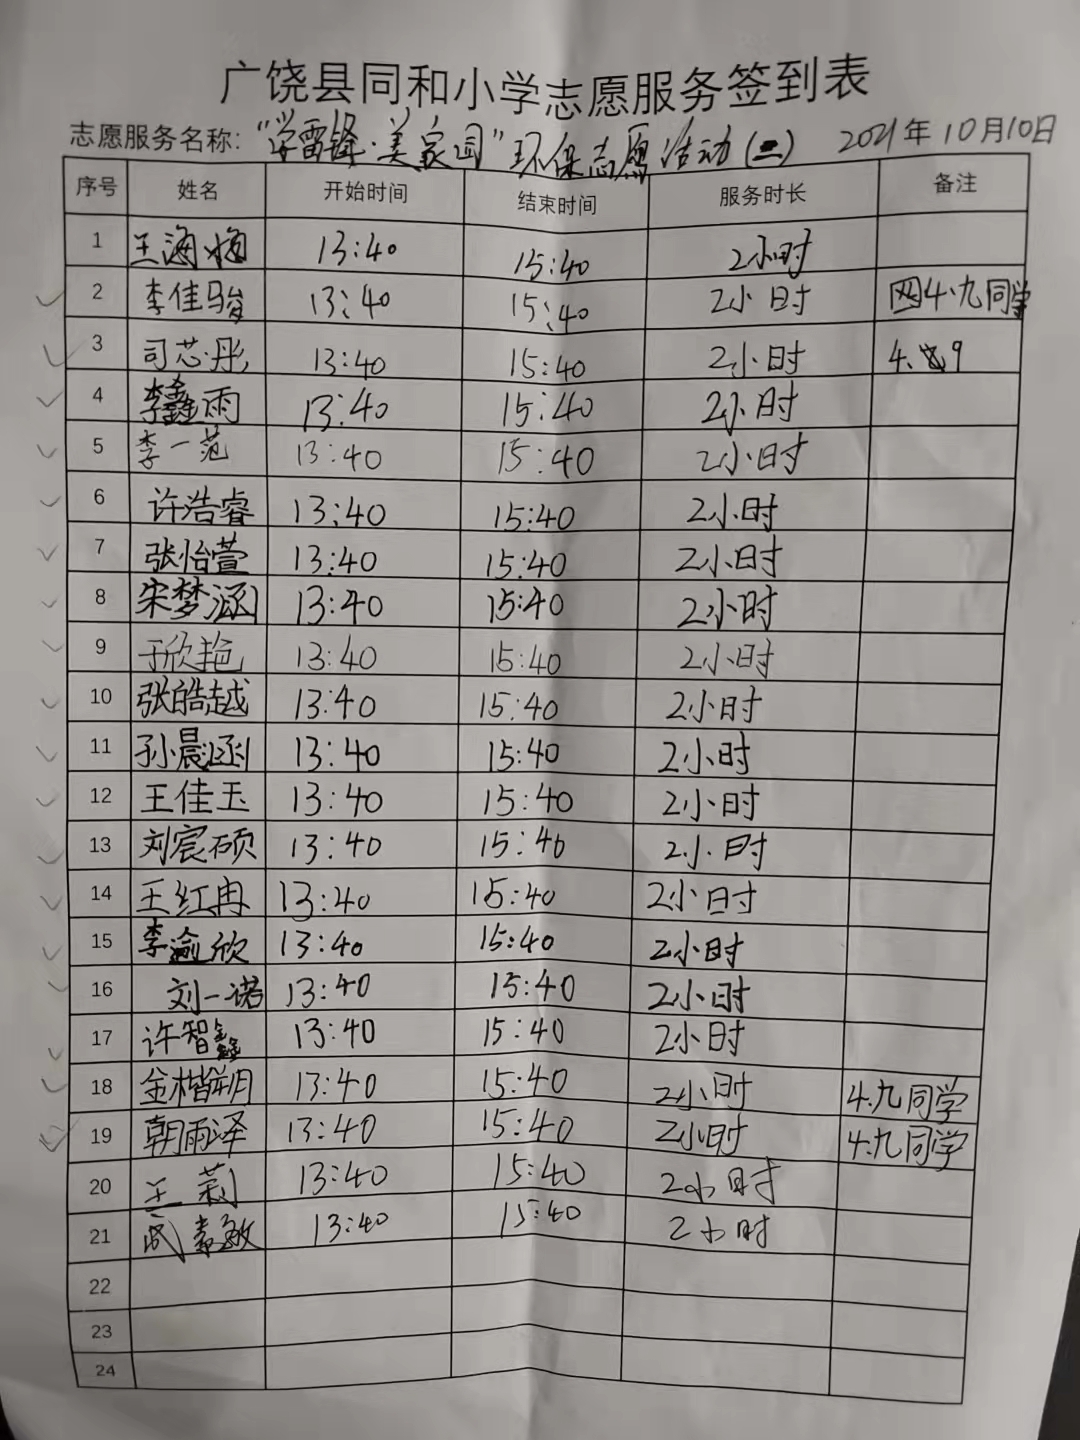 广饶县同和小学志愿服务签到表
志愿服务名称：“学雷锋·美家园”环保志愿活动(二) 2021年10月10日
序号 姓名 开始时间 结束时间 服务时长 备注
1 王海梅 13:40 15:40 2小时
2 李佳骏 13:40 15:40 2小时 四4.九同学
3 司芯彤 13:40 15:40 2小时 4.9
4 李鑫雨 13:40 15:40 2小时
5 李一范 13:40 15:40 2小时
6 许浩睿 13:40 15:40 2小时
7 张怡萱 13:40 15:40 2小时
8 宋梦涵 13:40 15:40 2小时
9 于欣艳 13:40 15:40 2小时
10 张皓越 13:40 15:40 2小时
11 孙晨函 13:40 15:40 2小时
12 王佳玉 13:40 15:40 2小时
13 刘宸硕 13:40 15:40 2小时
14 王红冉 13:40 15:40 2小时
15 李渝欣 13:40 15:40 2小时
16 刘一诺 13:40 15:40 2小时
17 许智鑫 13:40 15:40 2小时
18 金楷朔 13:40 15:40 2小时 4.九同学
19 朝雨泽 13:40 15:40 2小时 4.九同学
20 王莉 13:40 15:40 2小时
21 13:40 15:40 2小时
22
23
24